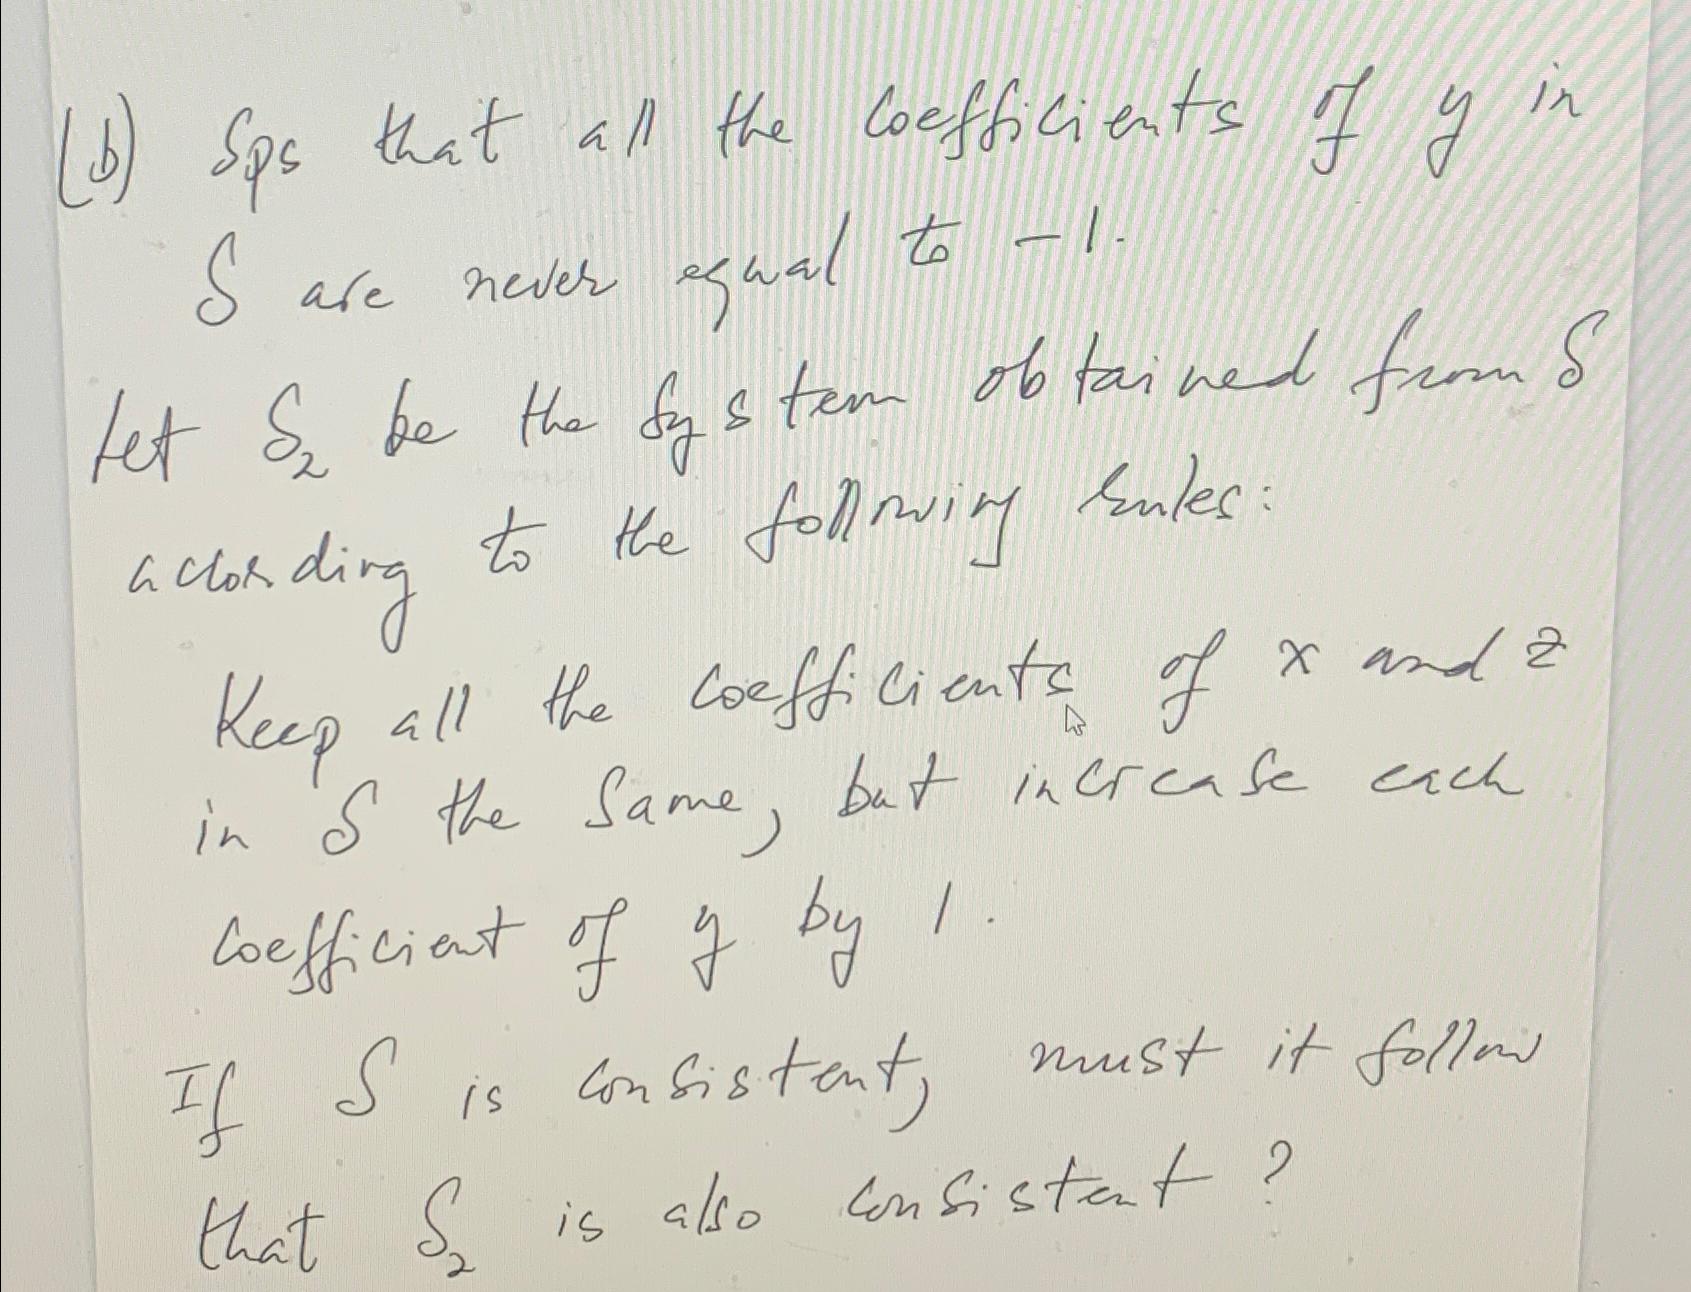 (b) Sps that all the coefficients of y in
S are never equal to -1.
Let S₂ be the system obtained from S
according to the following rules:
Keep all the coefficients of x and z
in S the same, but increase each
coefficient of y by 1.
If S is consistent, must it follow
that S₂ is also consistent?